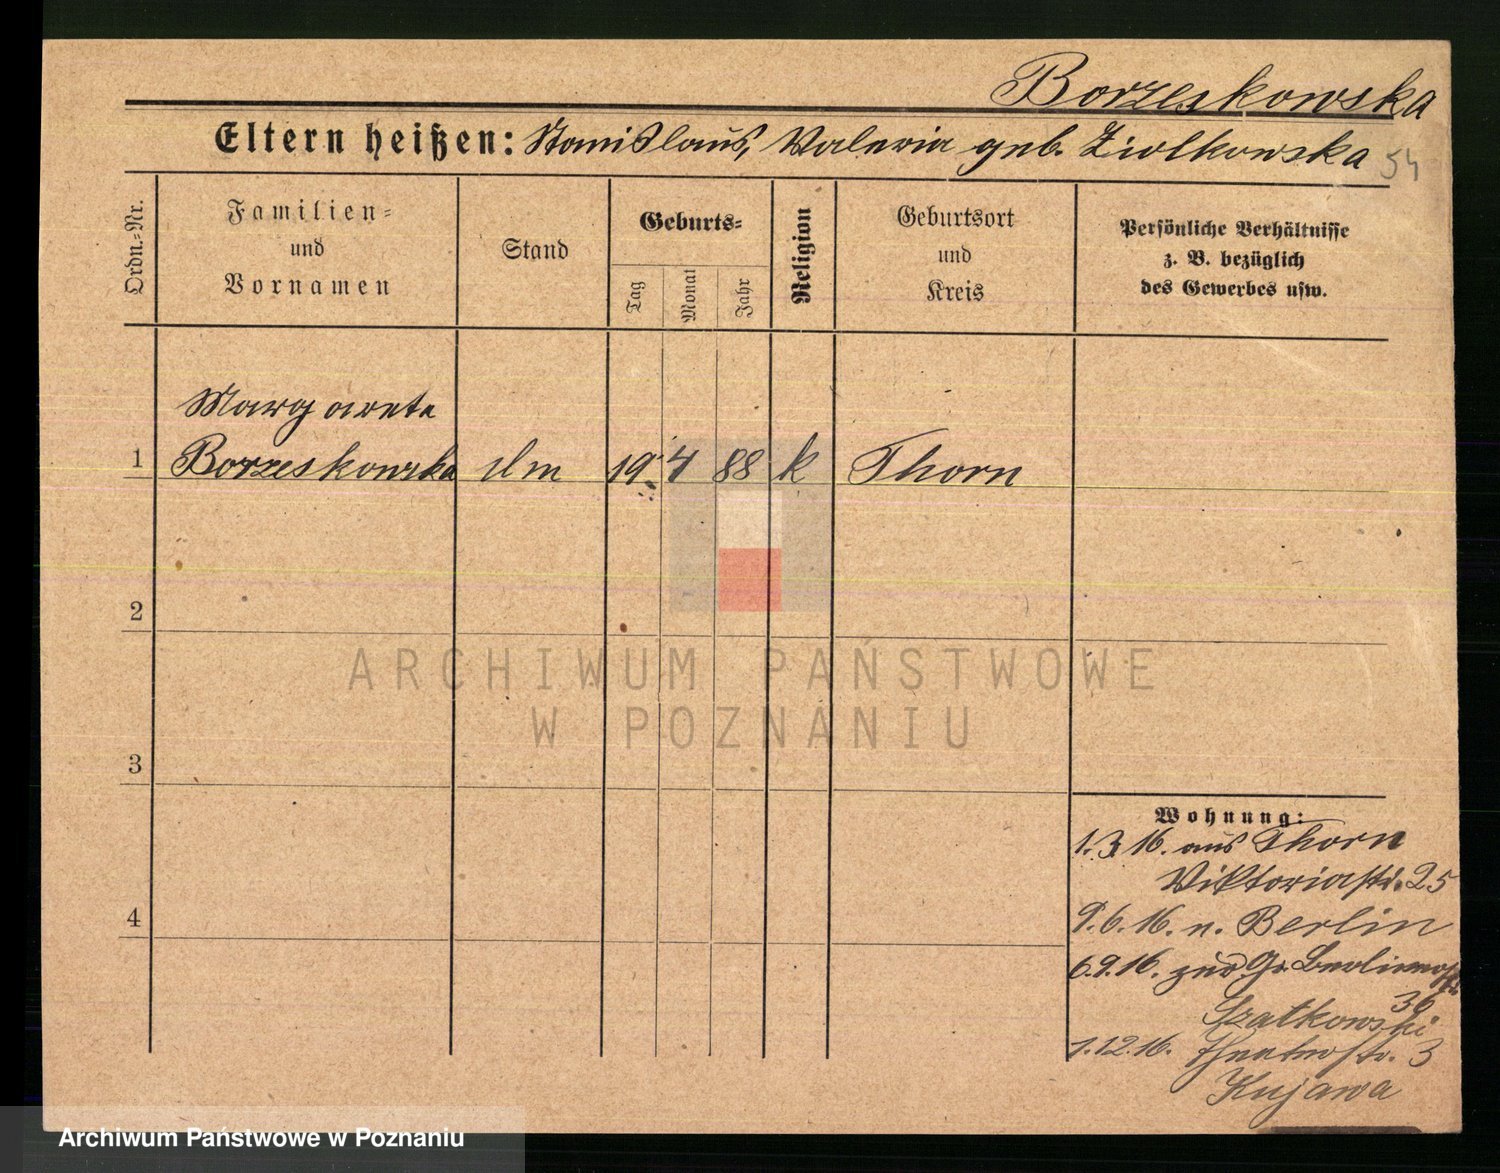 Borzeskowska
Eltern heißen: Stanislaus, Valeria geb. Ziolkowska 54
Ordn.-Nr.
Familien-
und
Vornamen
Stand
Geburts-
Tag
Monat
Jahr
Religion
Geburtsort
und
Kreis
Persönliche Verhältnisse
z. B. bezüglich
des Gewerbes usw.
Margarete
1 Borzeskowska 19. 4 88 k Thorn
2
3
4
Wohnung:
1.3.16. aus Thorn
Viktoriastr. 25
9.6.16. n. Berlin
6.9.16. zur. Gr. Berlinerstr.
36
Szatkowski
1.12.16. Theaterstr. 3
Kujawa
ARCHIWUM PAŃSTWOWE
W POZNANIU
Archiwum Państwowe w Poznaniu